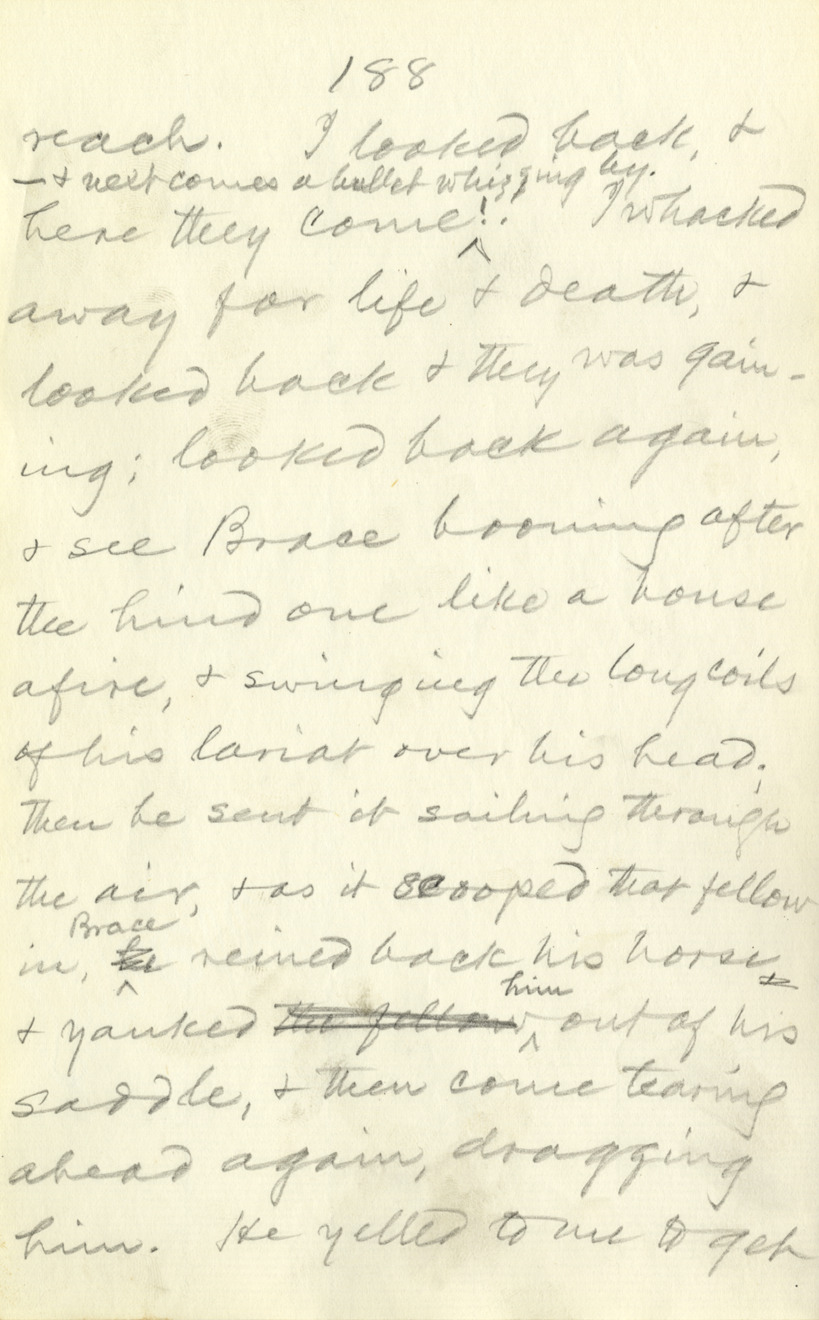 188
reach. I looked back, &
— & next comes a bullet whizzing by.
here they come!. I whacked
away for life & death, &
looked back & they was gain-
ing; looked back again,
& see Brace booming after
the hind one like a house
afire, & swinging the long coils
of his lariat over his head;
then he sent it sailing through
the air, & as it scooped that fellow
Brace
in, he reined back his horse
him
& yanked the fellow out of his
saddle, & then come tearing
ahead again, dragging
him. He yelled to me to get